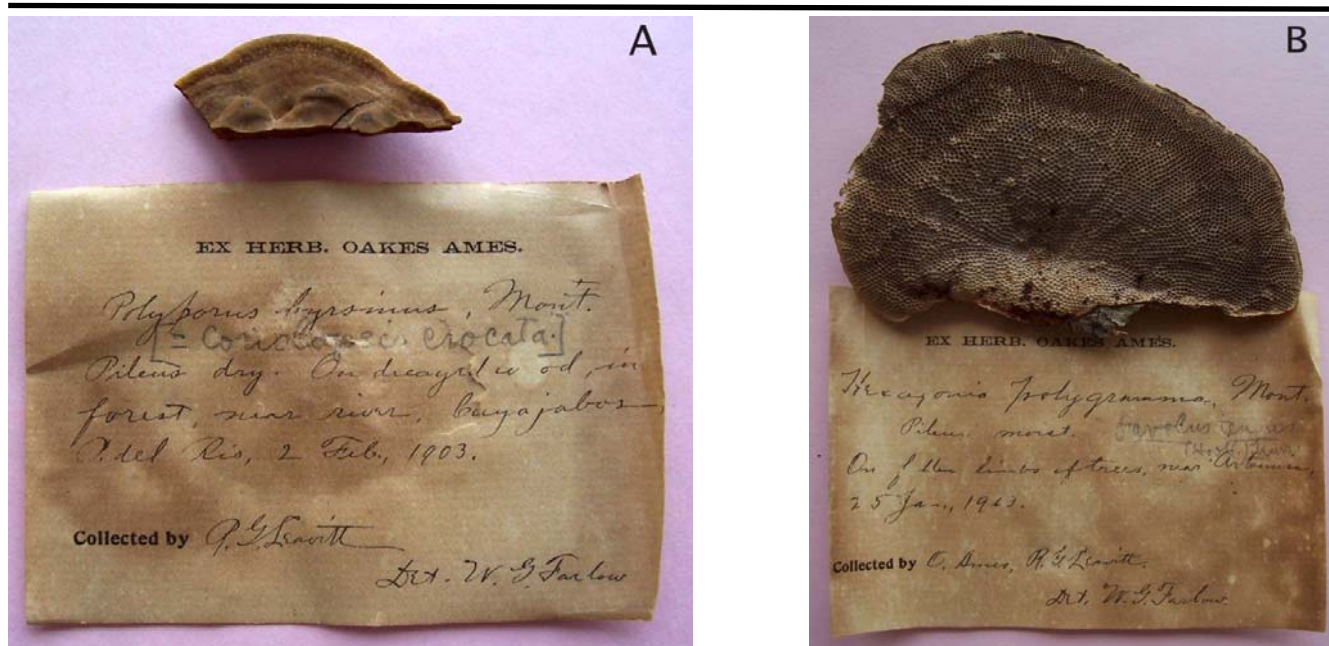 A
EX HERB. OAKES AMES.
Polyporus byrsinus, Mont.
[= Coriolopsis crocata.]
Pileus dry. On decayed wood, in
forest, near river, Cayajabos,
P. del Rio, 2 Feb., 1903.
Collected by R. G. Leavitt
Det. W. G. Farlow
B
EX HERB. OAKES AMES.
Hexagonia polygramma, Mont.
Pileus moist. Favolus
On fallen limbs of trees, near Artemisa,
25 Jan., 1903.
Collected by O. Ames, R. G. Leavitt.
Det. W. G. Farlow.